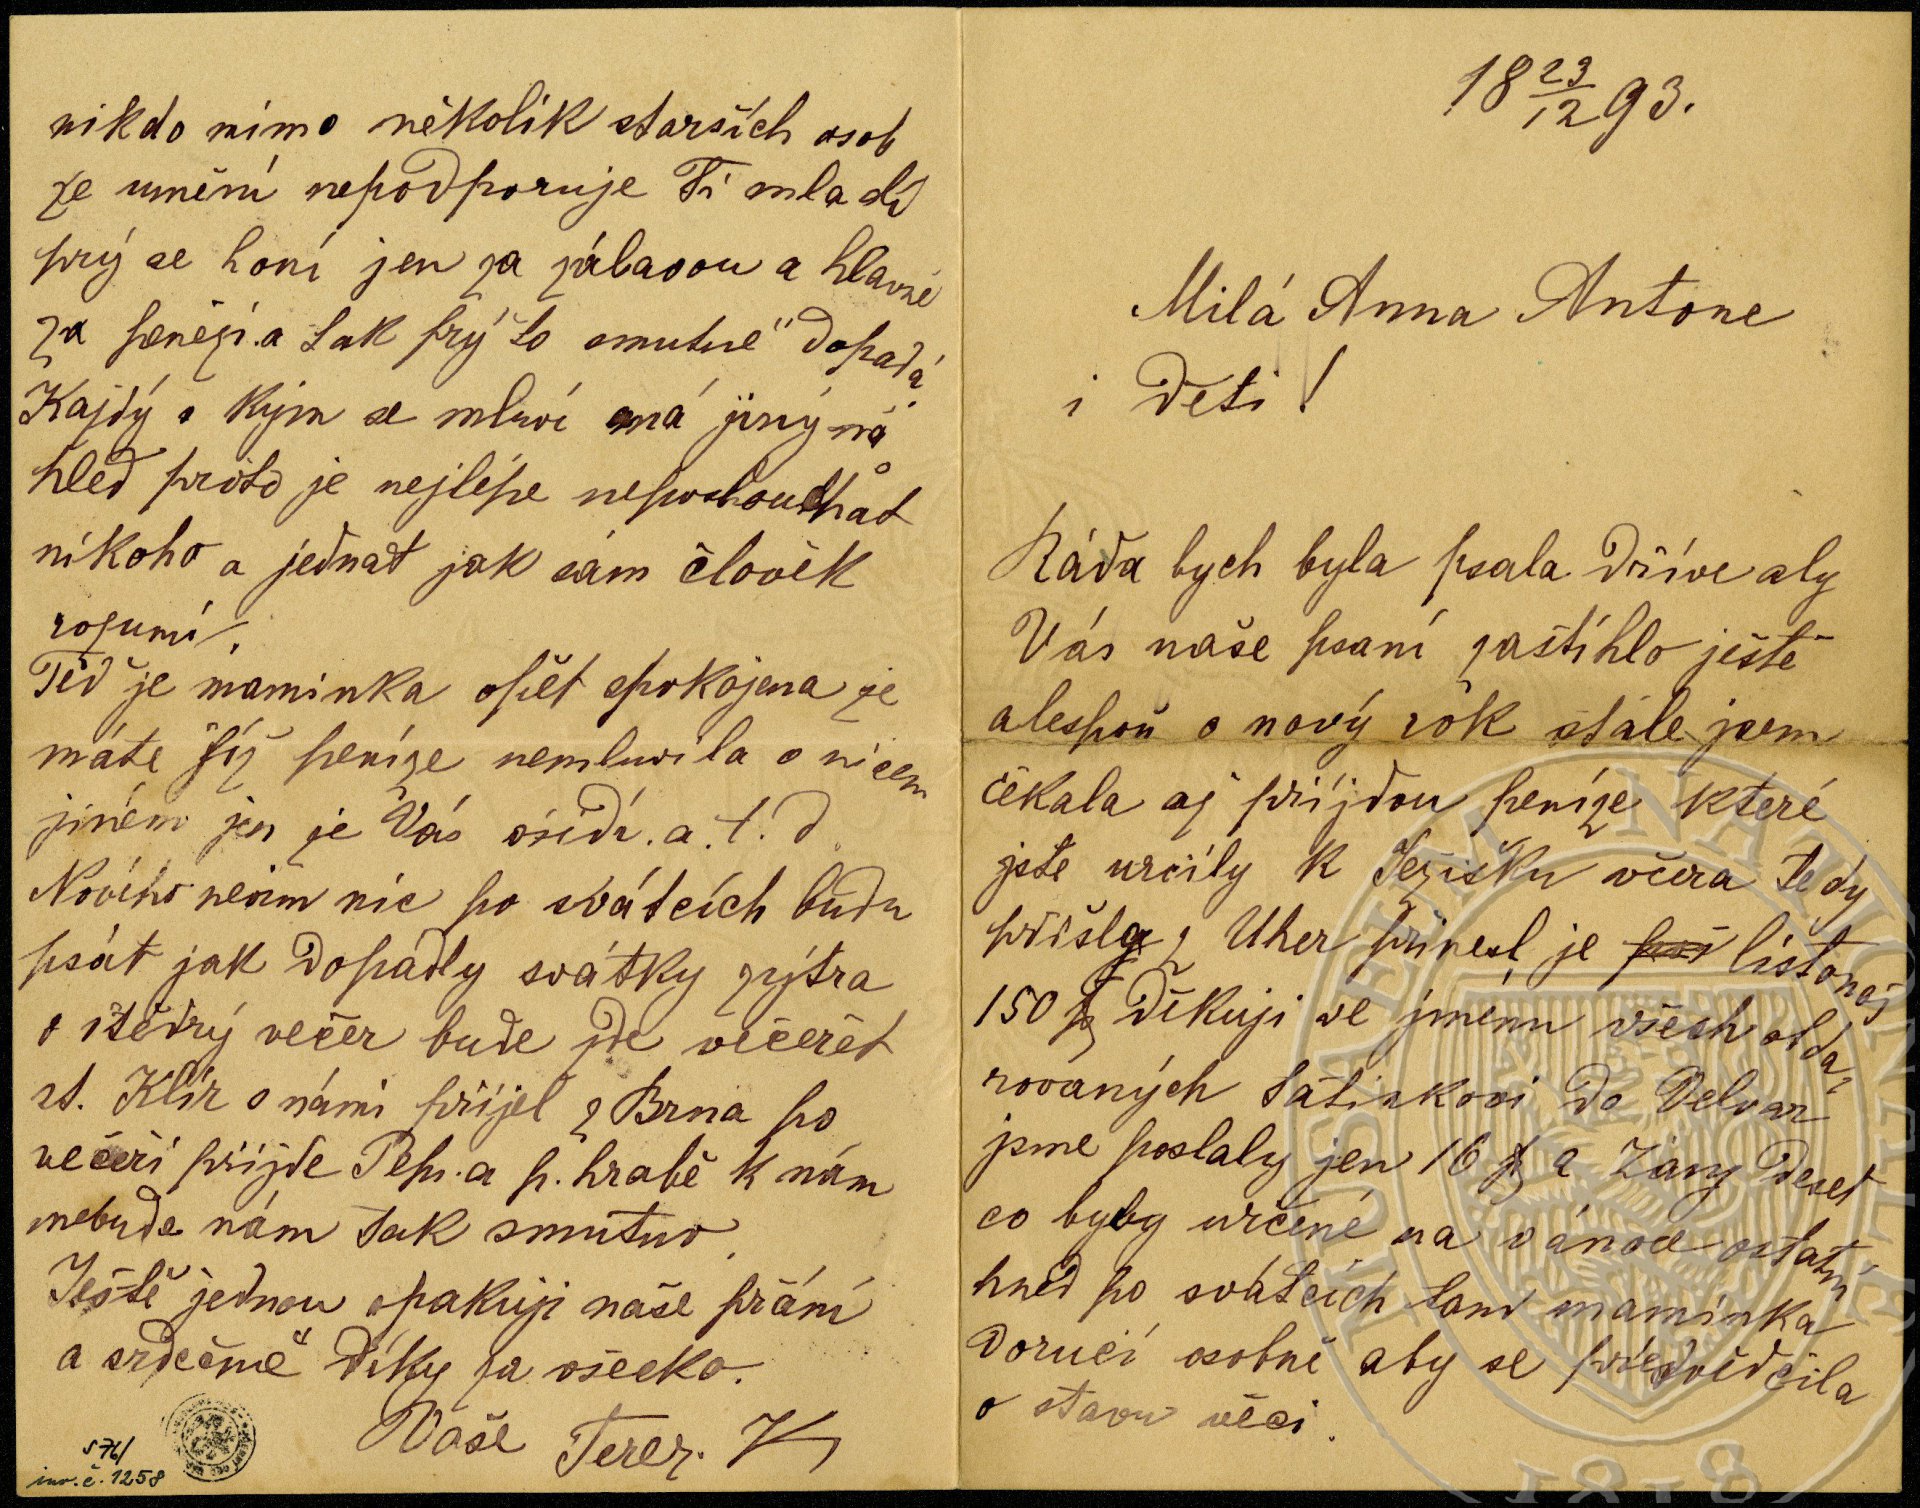 18 23/12 93.
Milá Anna Antone
i Děti!
Ráda bych byla psala Dříve aby
Vás naše psaní zastihlo ještě
alespoň o nový rok stále jsem
čekala až příjdou peníze které
jste určily k Ježíšku včera tedy
přišly, Uher přinesl je listonoš
150 Děkuji ve jménu všech obda-
rovaných tatínkovi do Velvar
jsme poslaly jen 16 a Zány Deset
co byly určené na vánoce ostatní
hned po svátcích tam maminka
Doručí osobně aby se přesvědčila
o stavu věci.
nikdo mimo několik starších osob
ze umění nepodporuje Ti mladí
prý se honí jen za zábavou a hlavně
za penězi. a tak prý to smutně Dopadá.
Každý s kým se mluví má jiný ná
hled proto je nejlépe neposlouchat
nikoho a jednat jak sám člověk
rozumí.
Teď je maminka opět spokojena že
máte již peníze nemluvila o ničem
jiném jen že Vás ošidí. a. t. d.
Nového nevím nic po svátcích budu
psát jak Dopadly svátky zýtra
o štědrý večer bude zde večeřet
st. Klír s námi přijel z Brna po
večeři příjde Pep. a p. hrabě k nám
nebude nám tak smutno.
Ještě jednou opakuji naše přání
a srdečné Díky za všecko.
Vaše Terez. K
S 76/
inv. č. 1258
MUSAEUM NATIONALE
1818